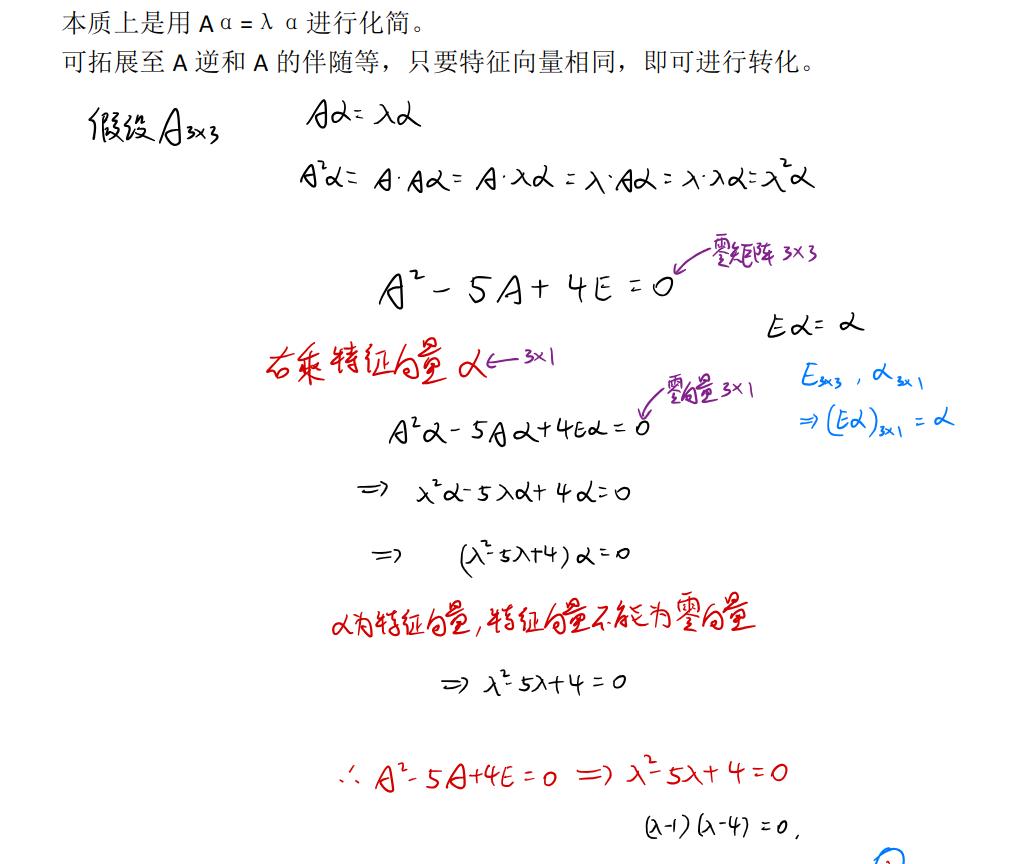 本质上是用 Aα=λα进行化简。
可拓展至 A 逆和 A 的伴随等，只要特征向量相同，即可进行转化。
假设 A₃ₓ₃
Aα = λα
A²α = A·Aα = A·λα = λ·Aα = λ·λα = λ²α
零矩阵 3×3
A² - 5A + 4E = 0
Eα = α
右乘特征向量 α ← 3×1
E₃ₓ₃ , α₃ₓ₁
零向量 3×1
⇒ (Eα)₃ₓ₁ = α
A²α - 5Aα + 4Eα = 0
⇒ λ²α - 5λα + 4α = 0
⇒ (λ² - 5λ + 4) α = 0
α为特征向量, 特征向量不能为零向量
⇒ λ² - 5λ + 4 = 0
∴ A² - 5A + 4E = 0 ⇒ λ² - 5λ + 4 = 0
(λ-1)(λ-4) = 0,